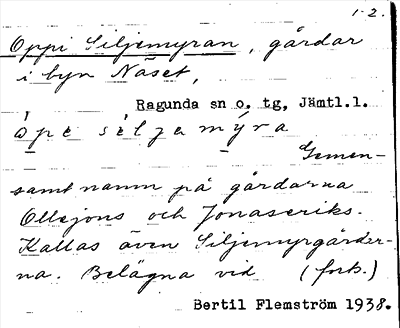 1-2.
Oppi Siljemyran, gårdar
i byn Näset,
Ragunda sn o. tg, Jämtl.l.
òpe sìljamýra
Gemen-
samt namn på gårdarna
Ollejons och Jonaseriks.
Kallas även Siljemyrgårdar-
na. Belägna vid (forts.)
Bertil Flemström 1938.